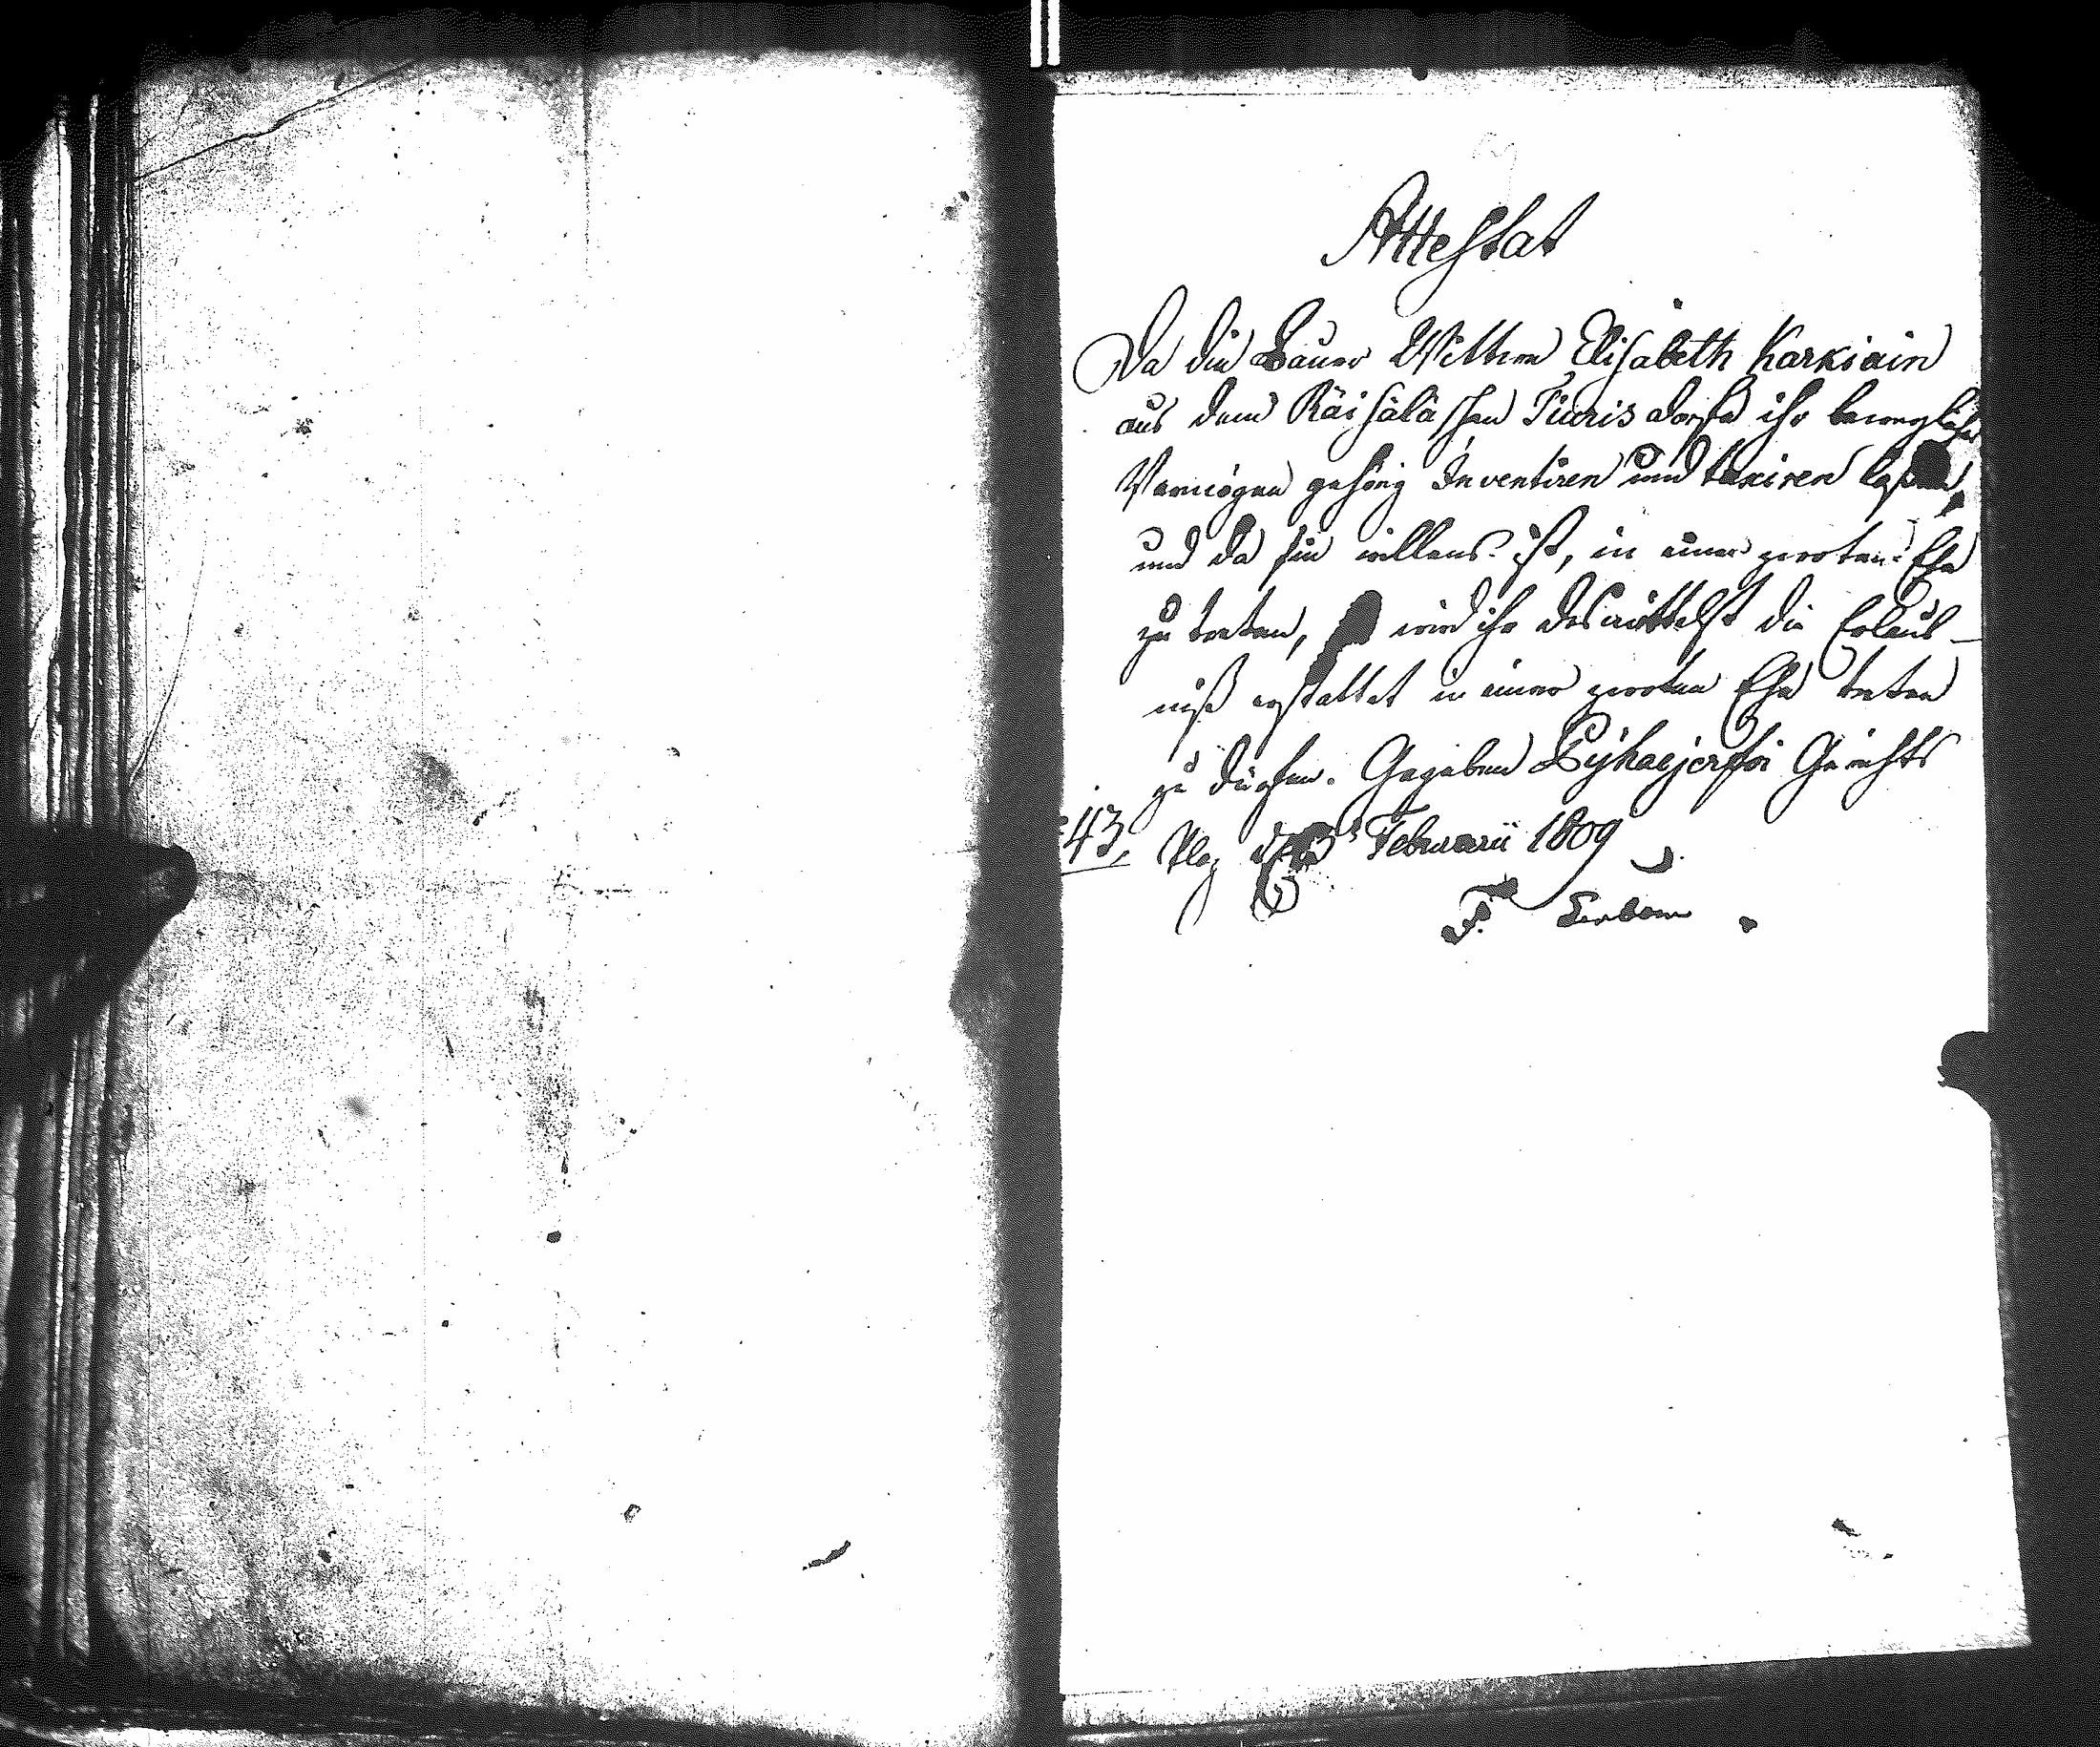 Attestat
Da die Bauer Wittwe Elisabeth Karkiain
aus dem Räisäläschen Tiuris dorfe ihr bewegliches
Vermögen gehörig Inventiren und taxiren laßen,
und da sie willens ist, in einer zwoten Ehe
zu treten, wird ihr desmittelst die Erlaub-
niß erstattet in einer zwoten Ehe treten
zu dürfen. Gegeben Pyhaejerfwi Gerichts
43, Plaz Februarii 1809
F.